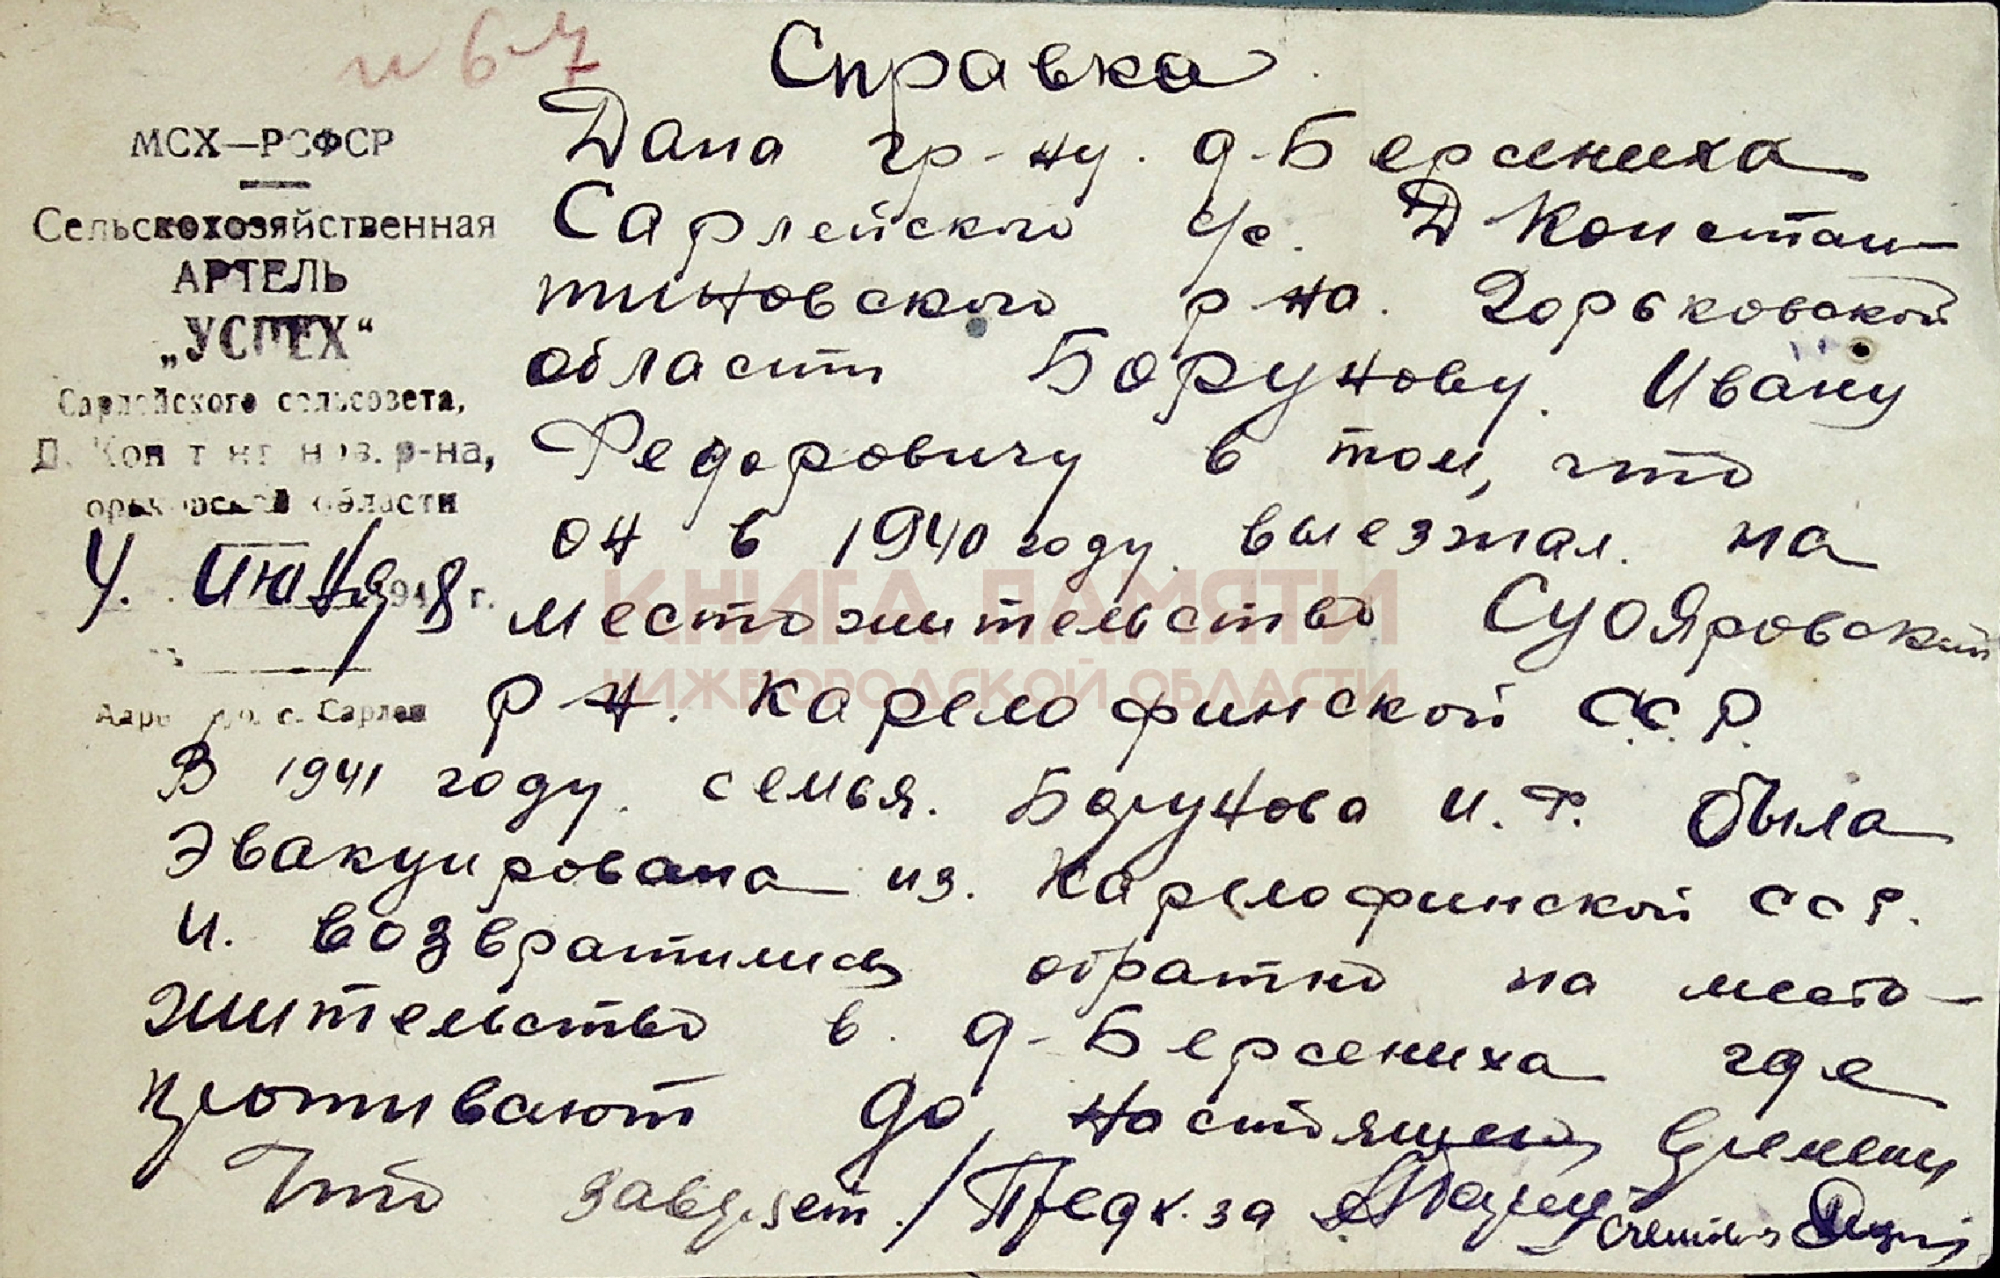 Справка
МСХ—РСФСР
Сельскохозяйственная
АРТЕЛЬ
„УСПЕХ“
Сарлейского сельсовета,
Д. Кон т нт нов. р-на,
орьковской области
4. июня 1948 г.
с. Сарлеи
Дана гр-ну. д-Берсениха
Сарлейского с/с. Д Констан-
тиновского р-на. Горьковской
области Борунову. Ивану
Федоровичу в том, что
он в 1940 году. выезжал. на
местожительство Суояровский
р-н. Карелофинской С.С.Р.
В 1941 году. семья. Борунова И.Ф. была
эвакуирована из. Карелофинской ССР.
и. возвратились обратно на место-
жительство в. д-Берсениха где
проживают до настоящего времени
Что заверяет. / Пред к-за
КНИГА ПАМЯТИ
НИЖЕГОРОДСКОЙ ОБЛАСТИ